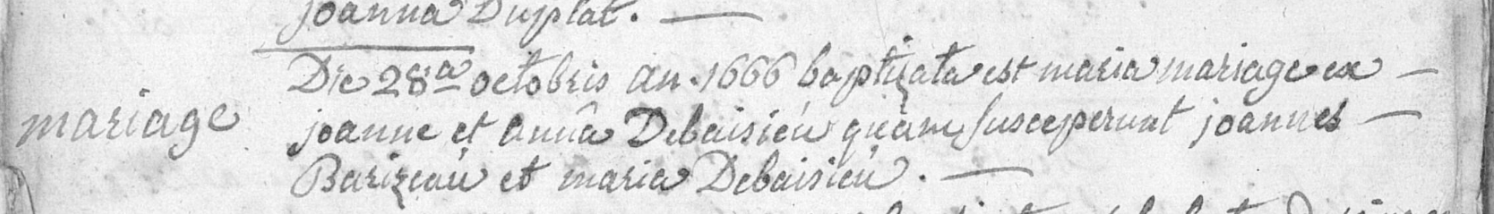 joanna Duplat. —
Die 28a octobris an. 1666 baptizata est maria mariage ex —
mariage
joanne et annâ Debaisieu quam susceperunt joannes —
Barizeau et maria Debaisieu. —